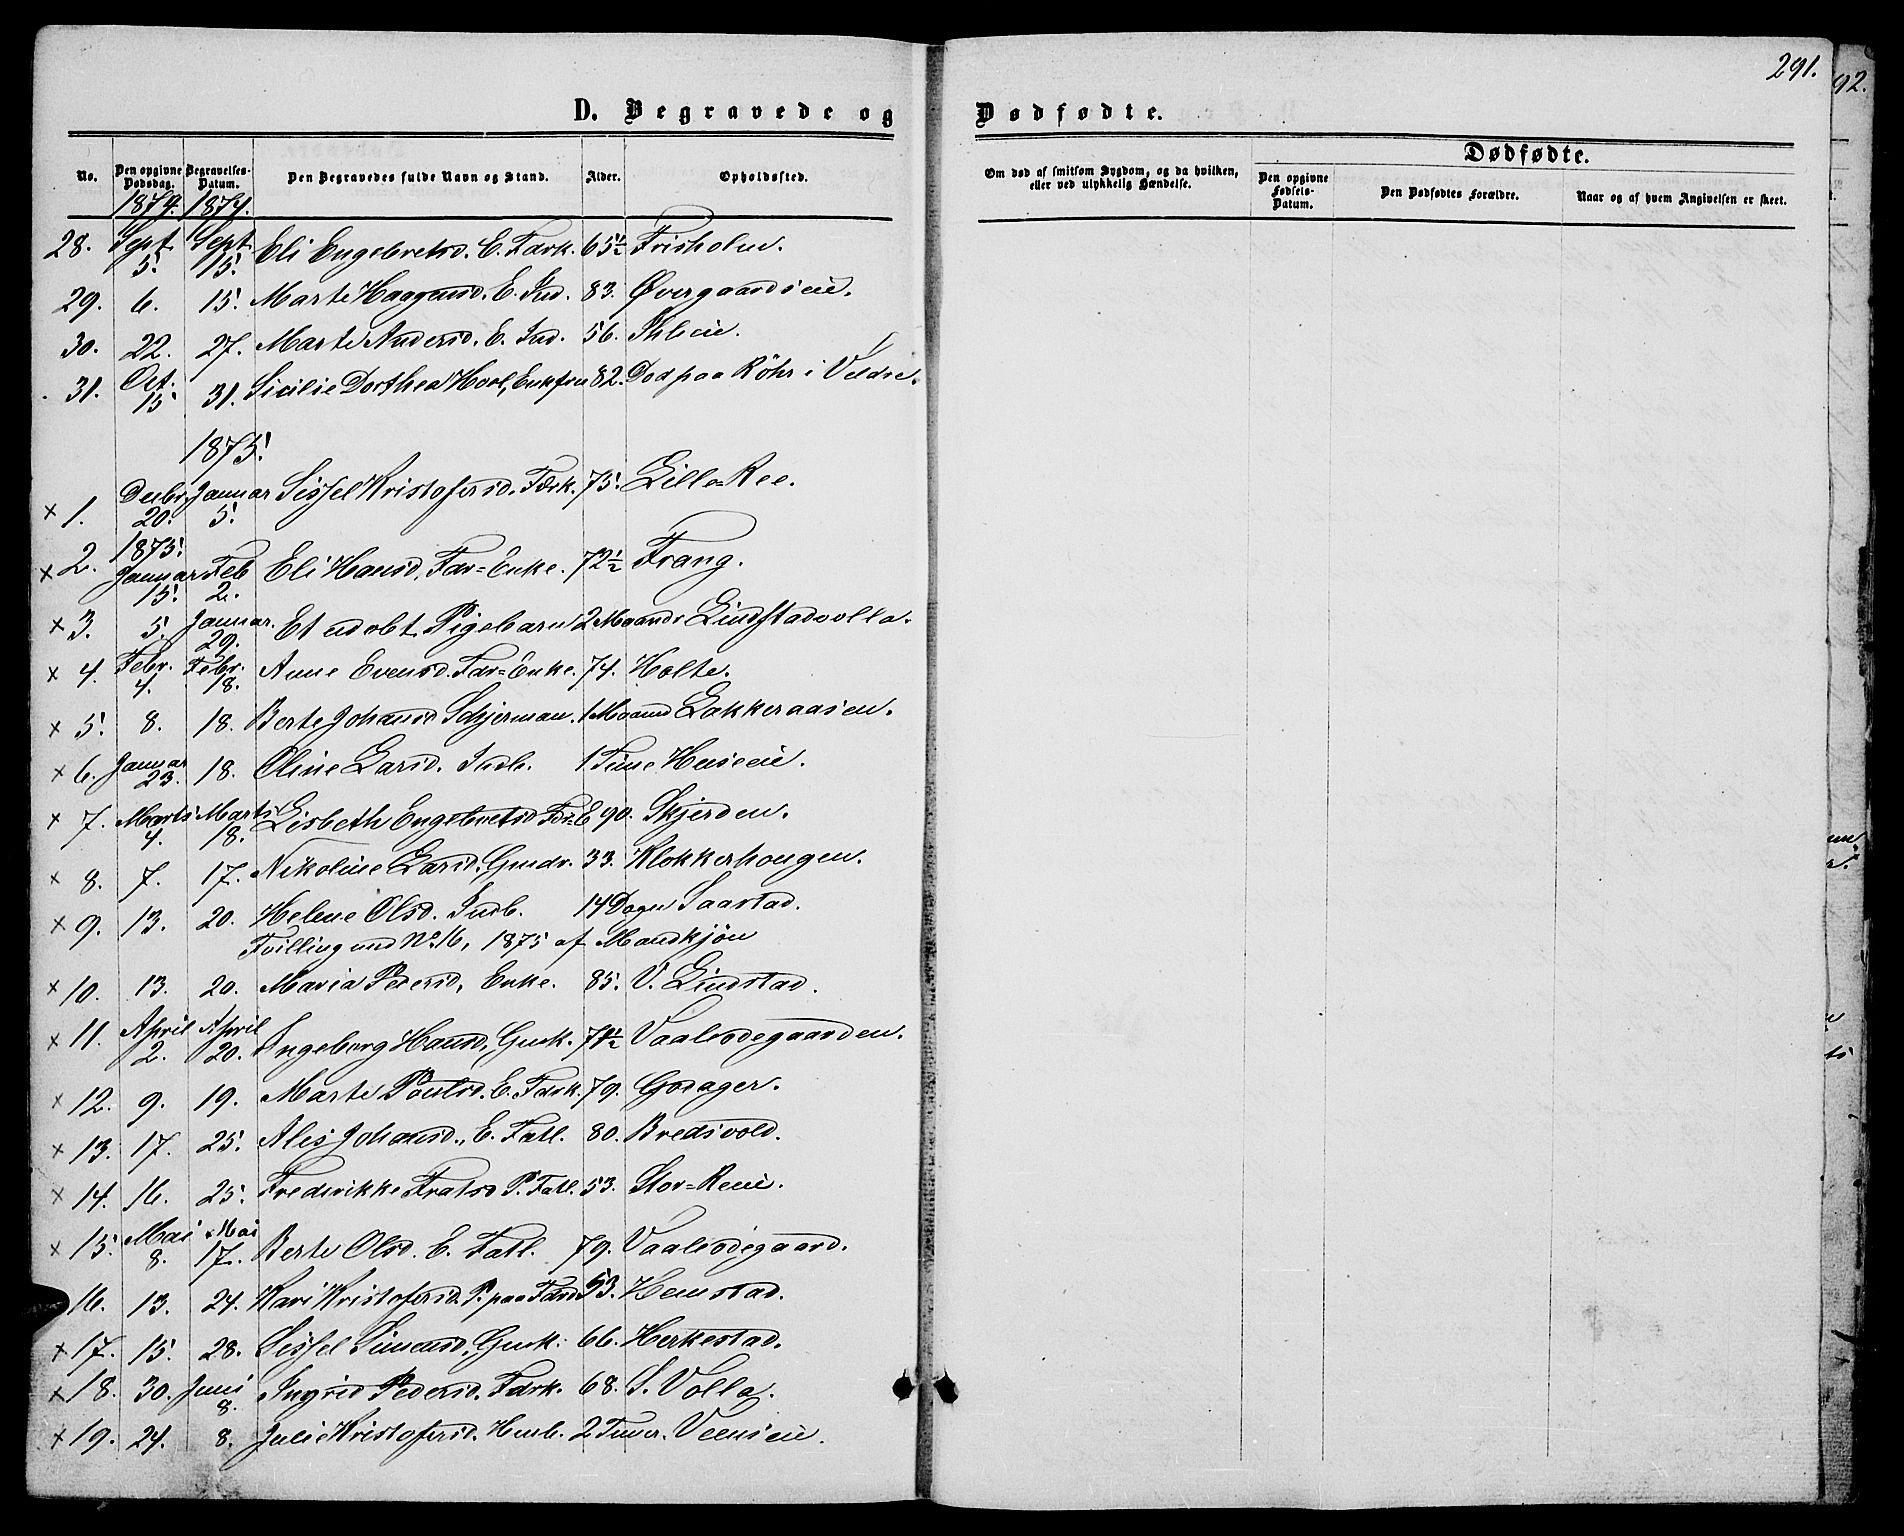 291.
92.
D. Begravede og Dødfødte.
No. Den opgivne Dødsdag. Begravelses-Datum. Den Begravedes fulde Navn og Stand. Alder. Opholdssted.
Om død af smitsom Sygdom, og da hvilken, eller ved ulykkelig Hændelse.
Dødfødte.
Den opgivne Fødsels-Datum. Den Dødfødtes Forældre. Naar og af hvem Angivelsen er skeet.
1874. 1874.
28. Sept. 5. Sept. 15. Eli Engebretsd. E. Fdrk. 65½ Frisholm.
29. 6. 15. Marte Haagensd. E. Ind. 83. Øvergaardseie.
30. 22. 27. Marte Andersd. E. Ind. 56. Ihleie.
31. Oct. 15 31. Sicilie Dorthea Hoel, Enkefru 82. Død paa Röhr i Veldre.
1875.
x 1. Decbr. 20. Januar 5. Sissel Kristofersd. Fdrk. 75. Lille-Ree.
x 2. 1875. Januar 15. Feb 2. Eli Hansd. Fdr=Enke. 72½ Frang.
x 3. 5. Januar 29. Et udøbt Pigebarn 2 Maaneder Lindstadvolla.
x 4. Febr. 4. Febr. 18. Anne Evensd. Fdr=Enke. 74. Holte.
x 5. 8. 18. Berte Johansd. Schjerman. 1 Maaned Lakkeraasen.
x 6. Januar 23. 18. Oline Larsd. Indb. 1 Time Huseeie.
x 7. Marts 4. Marts 18. Lisbeth Engebretsd Fdr=E 90. Skjerden.
x 8. 7. 17. Nikoline Larsd. Gmdr. 33. Klokkerhougen.
x 9. 13. 20. Helene Olsd. Indb. 14 Dage Saastad.
Tvilling med No. 16, 1875 af Mandkjön
x 10. 13. 20. Maria Pedersd, Enke. 85. V. Lindstad.
x 11. April 2. April 20. Ingeborg Hansd, Gmk. 71½ Vaalødegaarden.
x 12. 9. 19. Marte Poulsd. E. Fdrk. 79. Godager.
x 13. 17. 25. Alis Johansd., E. Fatl. 80. Bredsvold.
x 14. 16. 25. Fredrikke Fratsd P. Fatl. 53. Stor=Reeie.
x 15. Mai 8. Mai 17. Berte Olsd. E. Fatl. 79. Vaalødegaard.
16. 13. 24. Kari Kristofersd. P. paa Fdrd 53. Hemstad.
x 17. 15. 28. Sissel Simensd, Gmk. 66. Herkestad.
x 18. 30. Juni 8. Ingrid Pedersd. Fdrk. 68. S. Volla.
x 19. 24. 8. Julie Kristofersd. Husb. 2 Timer. Veenseie.